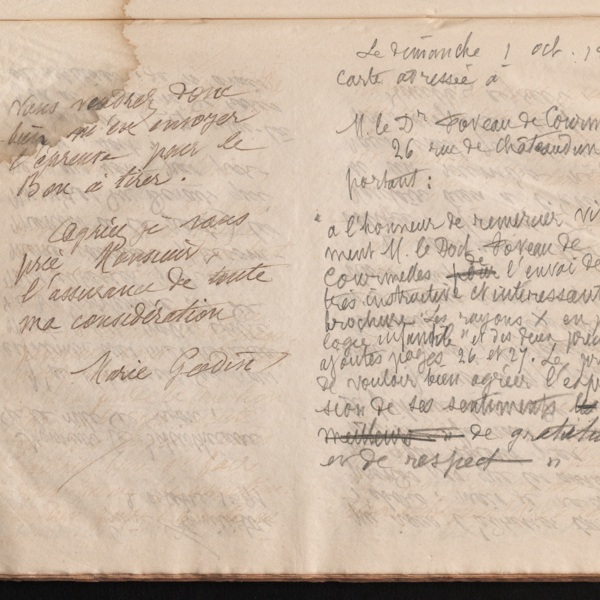 Vous voudrez donc
bien m'en envoyer
l'épreuve pour le
Bon à tirer.
Agréez je vous
prie Monsieur
l'assurance de toute
ma considération
Marie Godin
Le dimanche 1 oct.
carte adressée à
M. le Dr Foveau de Courm
26 rue de Châteaudun
portant :
" a l'honneur de remercier vi
ment M. le Doct. Foveau de
Courmelles pour de l'envoi de
très instructive et intéressant
brochure : Les rayons X en p
logie infantile " et des deux
ajoutés pages 26 et 27. Le
de vouloir bien agréer l'exp
sion de ses sentiments
meilleurs " de gratitu
et de respect "